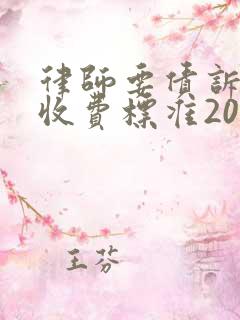 律師要債訴
收費標准20
王芬